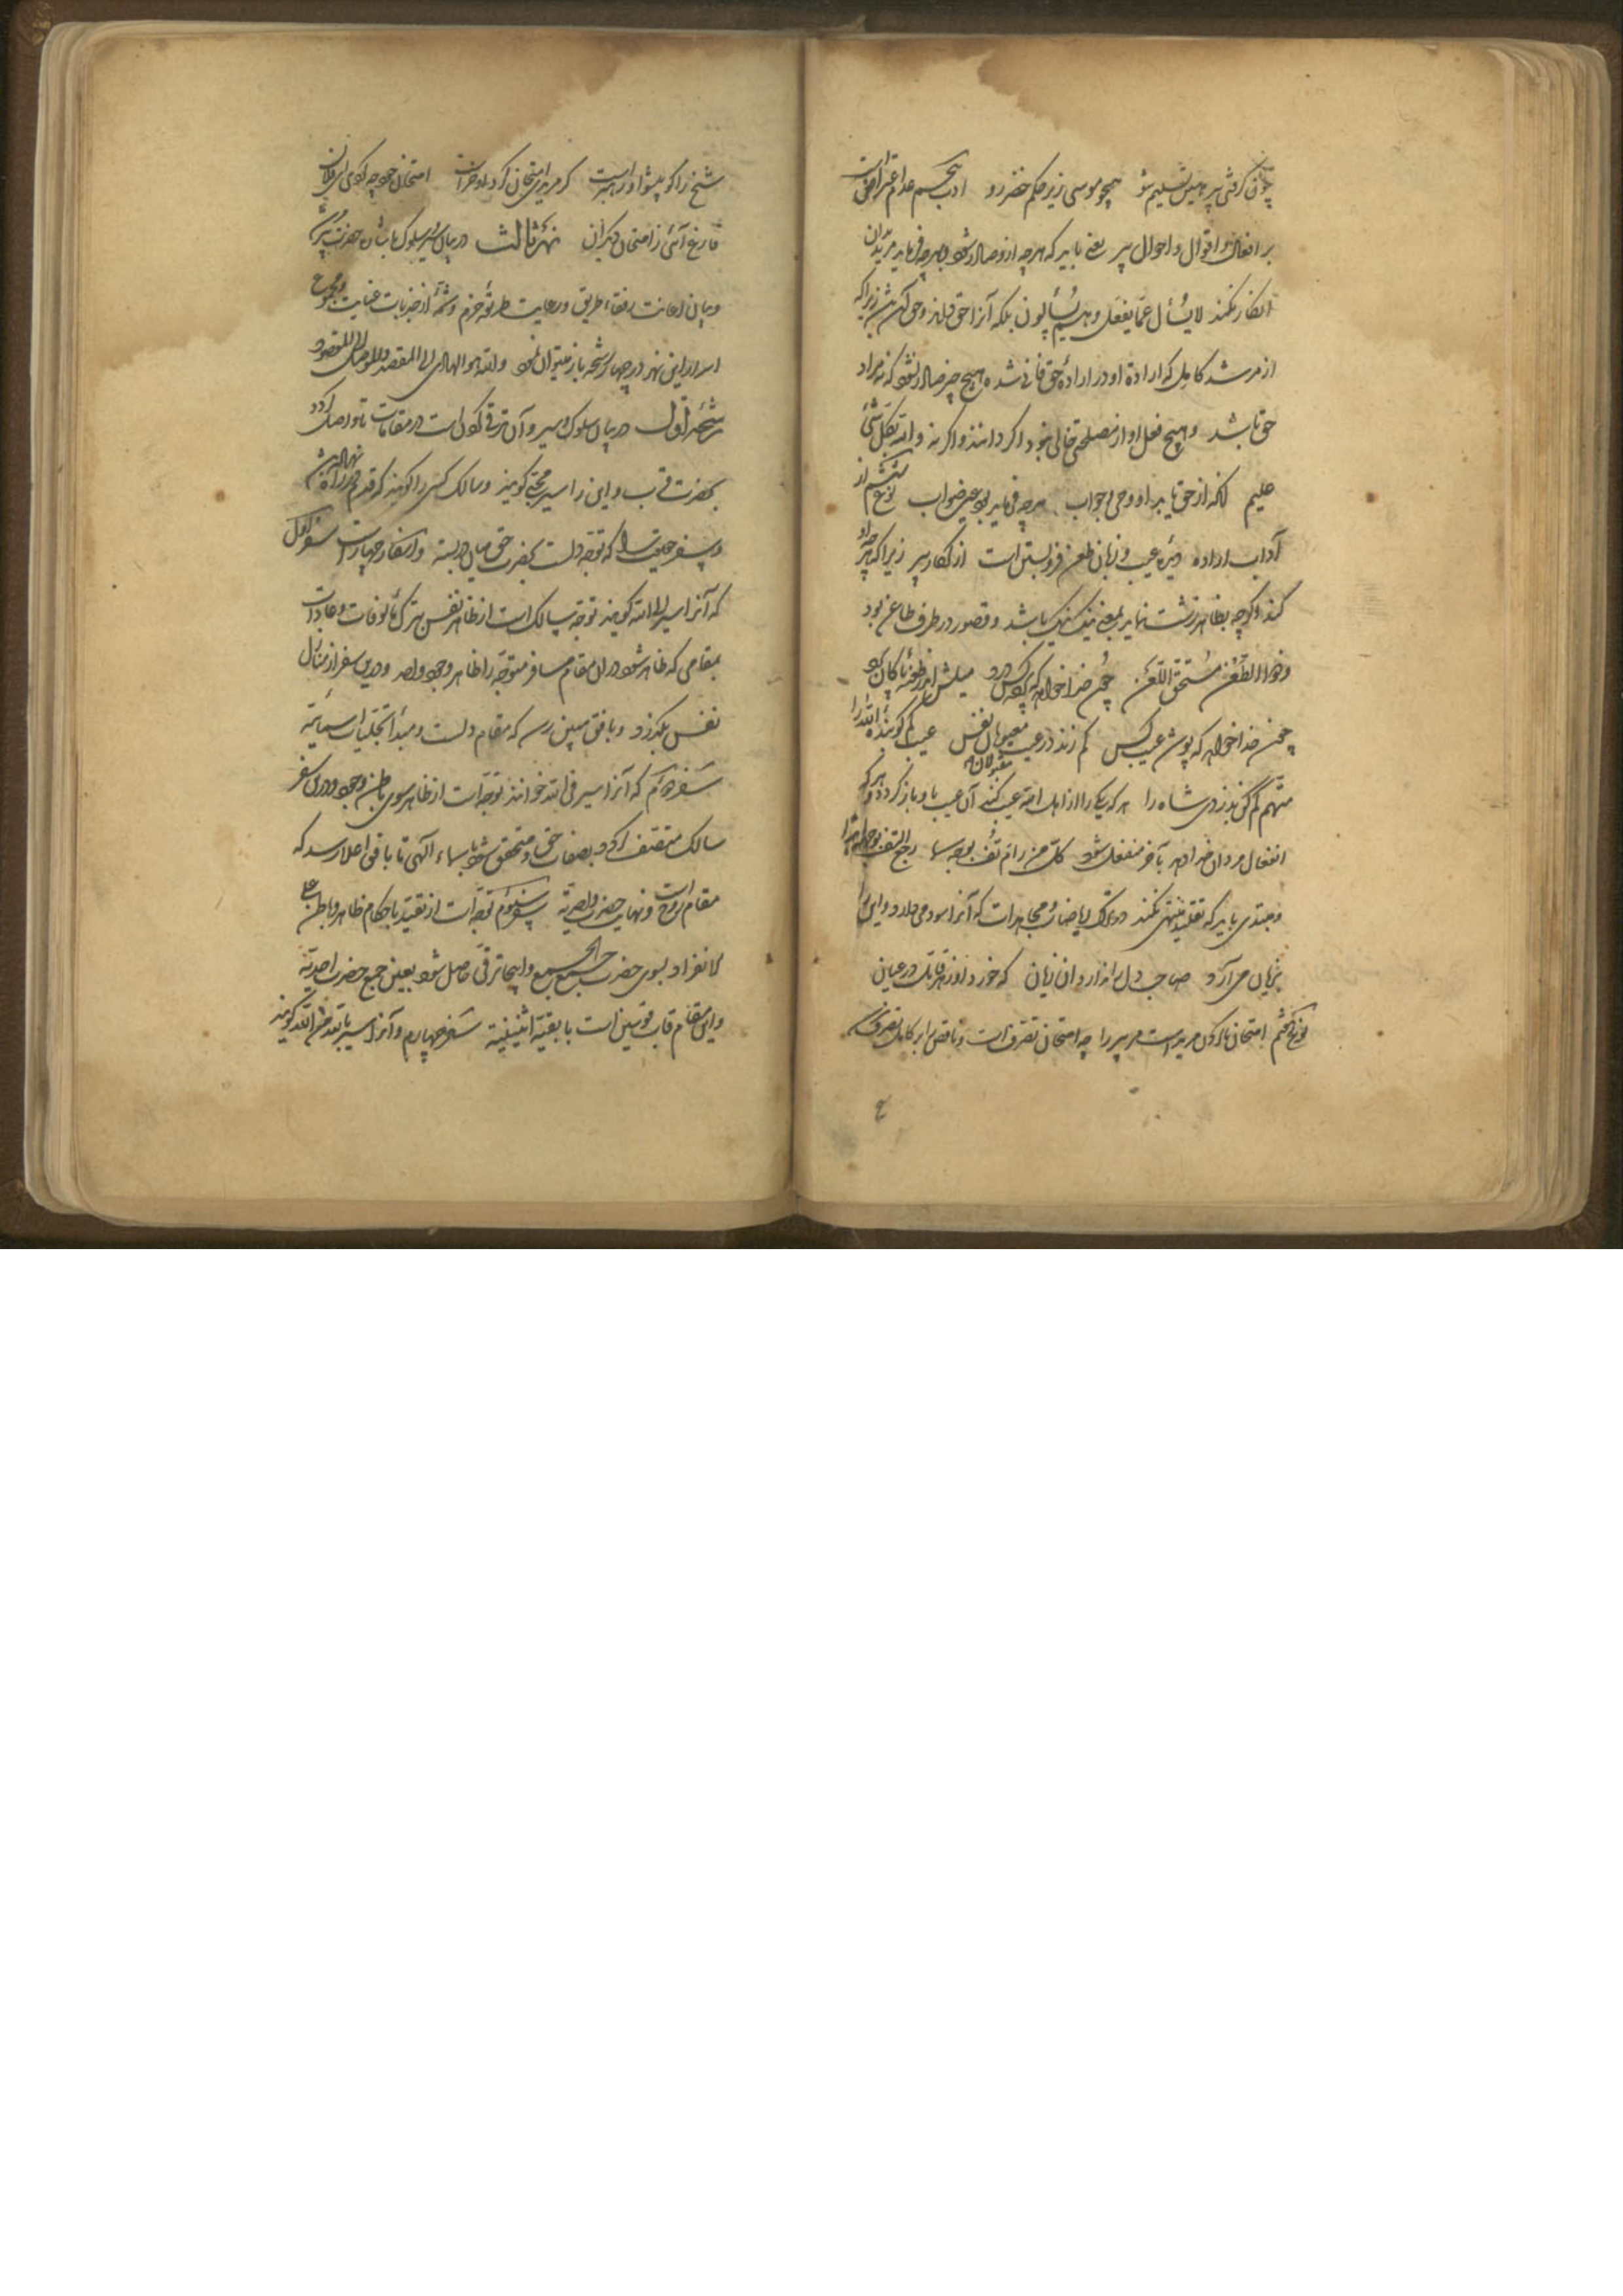 چون گرفتی پیر هین تسلیم شو همچو موسی زیر حکم خضر رو ادب پنجم عدم اعتراضست
بر افعال و اقوال و احوال پیر یعنی باید که هرچه ازو صادر شود و هرچه فرماید مریدان
انکار نکنند لا یسأل عما یفعل و هم یسألون بلکه آنرا حق داند و حق زیرا که
از مرشد کامل که ارادهٔ او در ارادهٔ حق فانی شده هیچ چیز صادر نشود که نه مراد
حق باشد و هیچ فعل او از مصلحتی خالی نبود اگر دانند و اگر نه و الله بکل شیٔ
علیم آنکه از حق یابد او وحی و جواب هرچه فرماید بود عین صواب نوع ششم از
آداب اراده دیدهٔ عیب و زبان طعن فروبستن است از انکار پیر زیرا که هرچه او
کند اگرچه بظاهر زشت نماید بمعنی نیک نیک باشد و قصور در طرف طاعن بود
و هو الطعن مستحق اللعن چون خدا خواهد که پردهٔ کس درد میلش اندر طعنهٔ پاکان کند
چون خدا خواهد که پوشد عیب کس کم زند در عیب معیوبان نفس عیب کم گو بندهٔ الله را
متهم کم کن بدزدی شاه را هر که یکی را از اهل الله عیب کند آن عیب باو باز گردد و هر که
انفعال مردان خدا دهد بآخر منفعل شود
و مبتدی باید که تقلید منتهی نکند در ترک ریاضات و مجاهدات که آنرا سود می دارد و این را
بزیان می آرد صاحب دل را ندارد آن زیان که خورد او زهر قاتل در عیان
نوع هشتم امتحان ناکردن مریدست مر پیر را چه امتحان تصرف است و ناقص را بر کامل تصرف
شیخ را کو پیشوا و رهبرست گر مریدی امتحان کرد او خرست امتحان خود چو کردی ای فلان
فارغ آیی ز امتحان دیگران نهر ثالث در بیان سیر و سلوک
و بیان اعانت رفقاء طریق و رعایت طریقهٔ حزم و شمهٔ از جذبات عنایت و مجموع
اسرار این نهر در چهار رشحه باز میتوان نمود و الله هو الهادی الی المقصد
رشحه اول در بیان سلوک و سیر و آن ترقی کردن است در مقامات تا واصل گردد
بحضرت قرب و این را سیر محبی گویند و سالک کسی را گویند که قدم درین راه نهاد
و سفر حقیقت آنست که توجه دلست بحضرت حق و اسفار چهارست سفر اول
که آنرا سیر الی الله گویند توجه سالک است از ظاهر نفس بترک مألوفات و عادات
بمقامی که ظاهر شود در آن مقام مسافر متوجه را ظاهر وجود واحد و درین سفر از منازل
نفس بگذرد و بافق مبین رسد که مقام دلست و مبدأ تجلیات اسمائیه
سفر دوم که آنرا سیر فی الله خوانند توجه است از ظاهر بسوی باطن وجود و درین سفر
سالک متصف گردد بصفات حق و متحقق شود باسماء الهی تا بافق اعلا رسد که
مقام روح است و نهایت حضرت واحدیه سفر سیوم توجه است از تقید باحکام ظاهر و باطن علی
الانفراد بسوی حضرت جمع الجمع و اینجا ترقی حاصل شود بعین جمع حضرت احدیه
و این مقام قاب قوسین است با بقیهٔ اثنینیه سفر چهارم و آنرا سیر بالله عن الله گویند